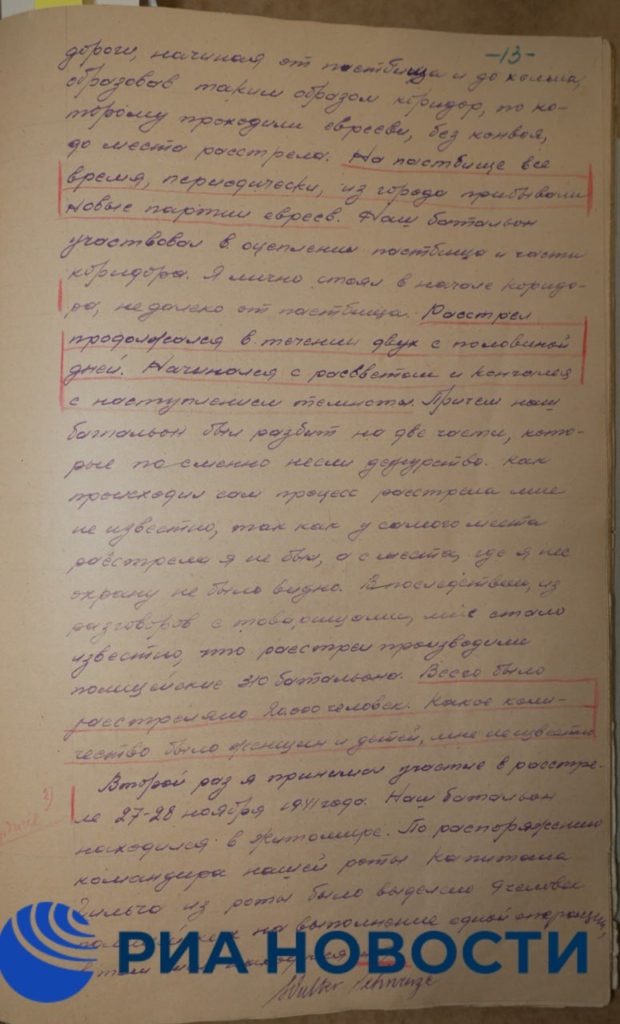 -13-
дороги, начиная от пастбища и до холма,
образовав таким образом коридор, по ко-
торому проходили евреи, без конвоя,
до места расстрела. На пастбище все
время, периодически, из города прибывали
новые партии евреев. Наш батальон
участвовал в оцеплении пастбища и части
коридора. Я лично стоял в начале коридо-
ра, недалеко от пастбища. Расстрел
продолжался в течении двух с половиной
дней. Начинался с рассветом и кончался
с наступлением темноты. Причем наш
батальон был разбит на две части, кото-
рые посменно несли дежурство. Как
происходил сам процесс расстрела мне
не известно, так как у самого места
расстрела я не был, а с места, где я нес
охрану не было видно. Впоследствии, из
разговоров с товарищами, мне стало
известно, что расстрел производили
полицейские батальона. Всего было
расстреляно человек. Какое коли-
чество было женщин и детей, мне неизвестно
3)
Второй раз я принимал участие в расстре-
ле 27-28 ноября 1941 года. Наш батальон
находился в Житомире. По распоряжению
командира нашей роты капитана
из роты было выделено человек
полицейских на выполнение одной операции,
в том
РИА НОВОСТИ